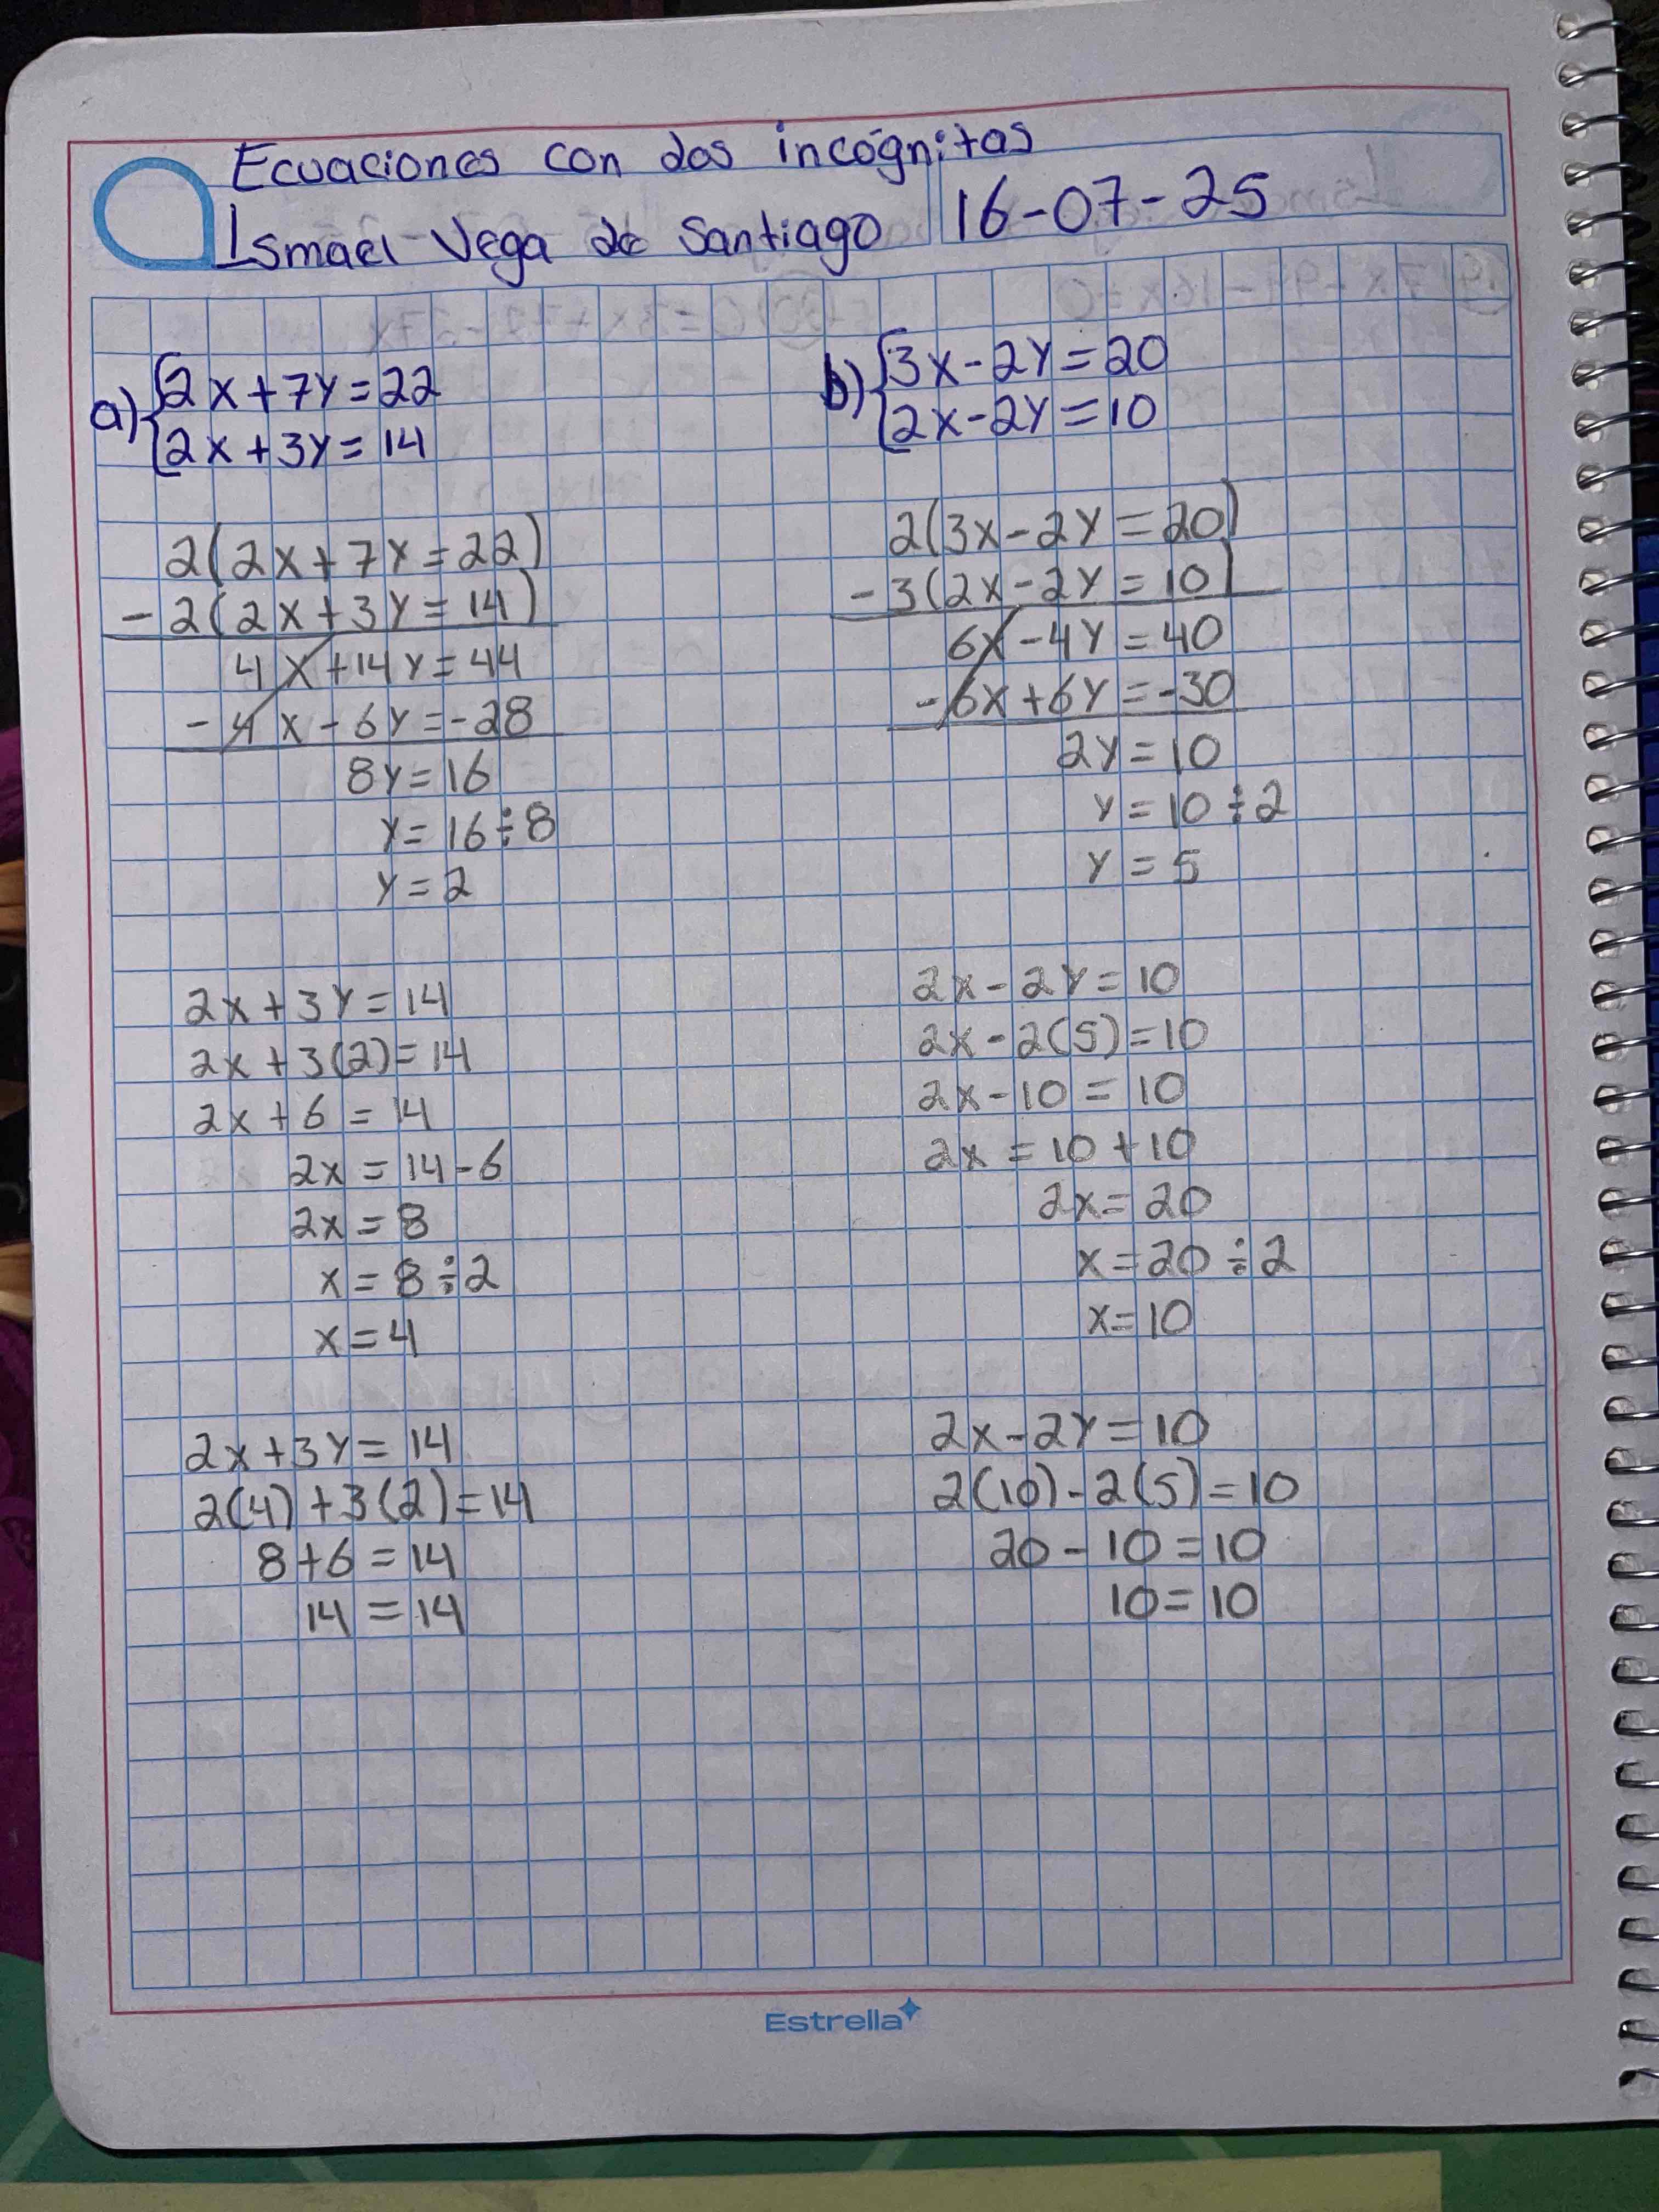 Ecuaciones con dos incógnitas
Ismael Vega de Santiago 16-07-25
a) {2x+7y=22
{2x+3y=14
2(2x+7y=22)
-2(2x+3y=14)
4x+14y=44
-4x-6y=-28
8y=16
y=16÷8
y=2
2x+3y=14
2x+3(2)=14
2x+6=14
2x=14-6
2x=8
x=8÷2
x=4
2x+3y=14
2(4)+3(2)=14
8+6=14
14=14
b) {3x-2y=20
{2x-2y=10
2(3x-2y=20)
-3(2x-2y=10)
6x-4y=40
-6x+6y=-30
2y=10
y=10÷2
y=5
2x-2y=10
2x-2(5)=10
2x-10=10
2x=10+10
2x=20
x=20÷2
x=10
2x-2y=10
2(10)-2(5)=10
20-10=10
10=10
Estrella